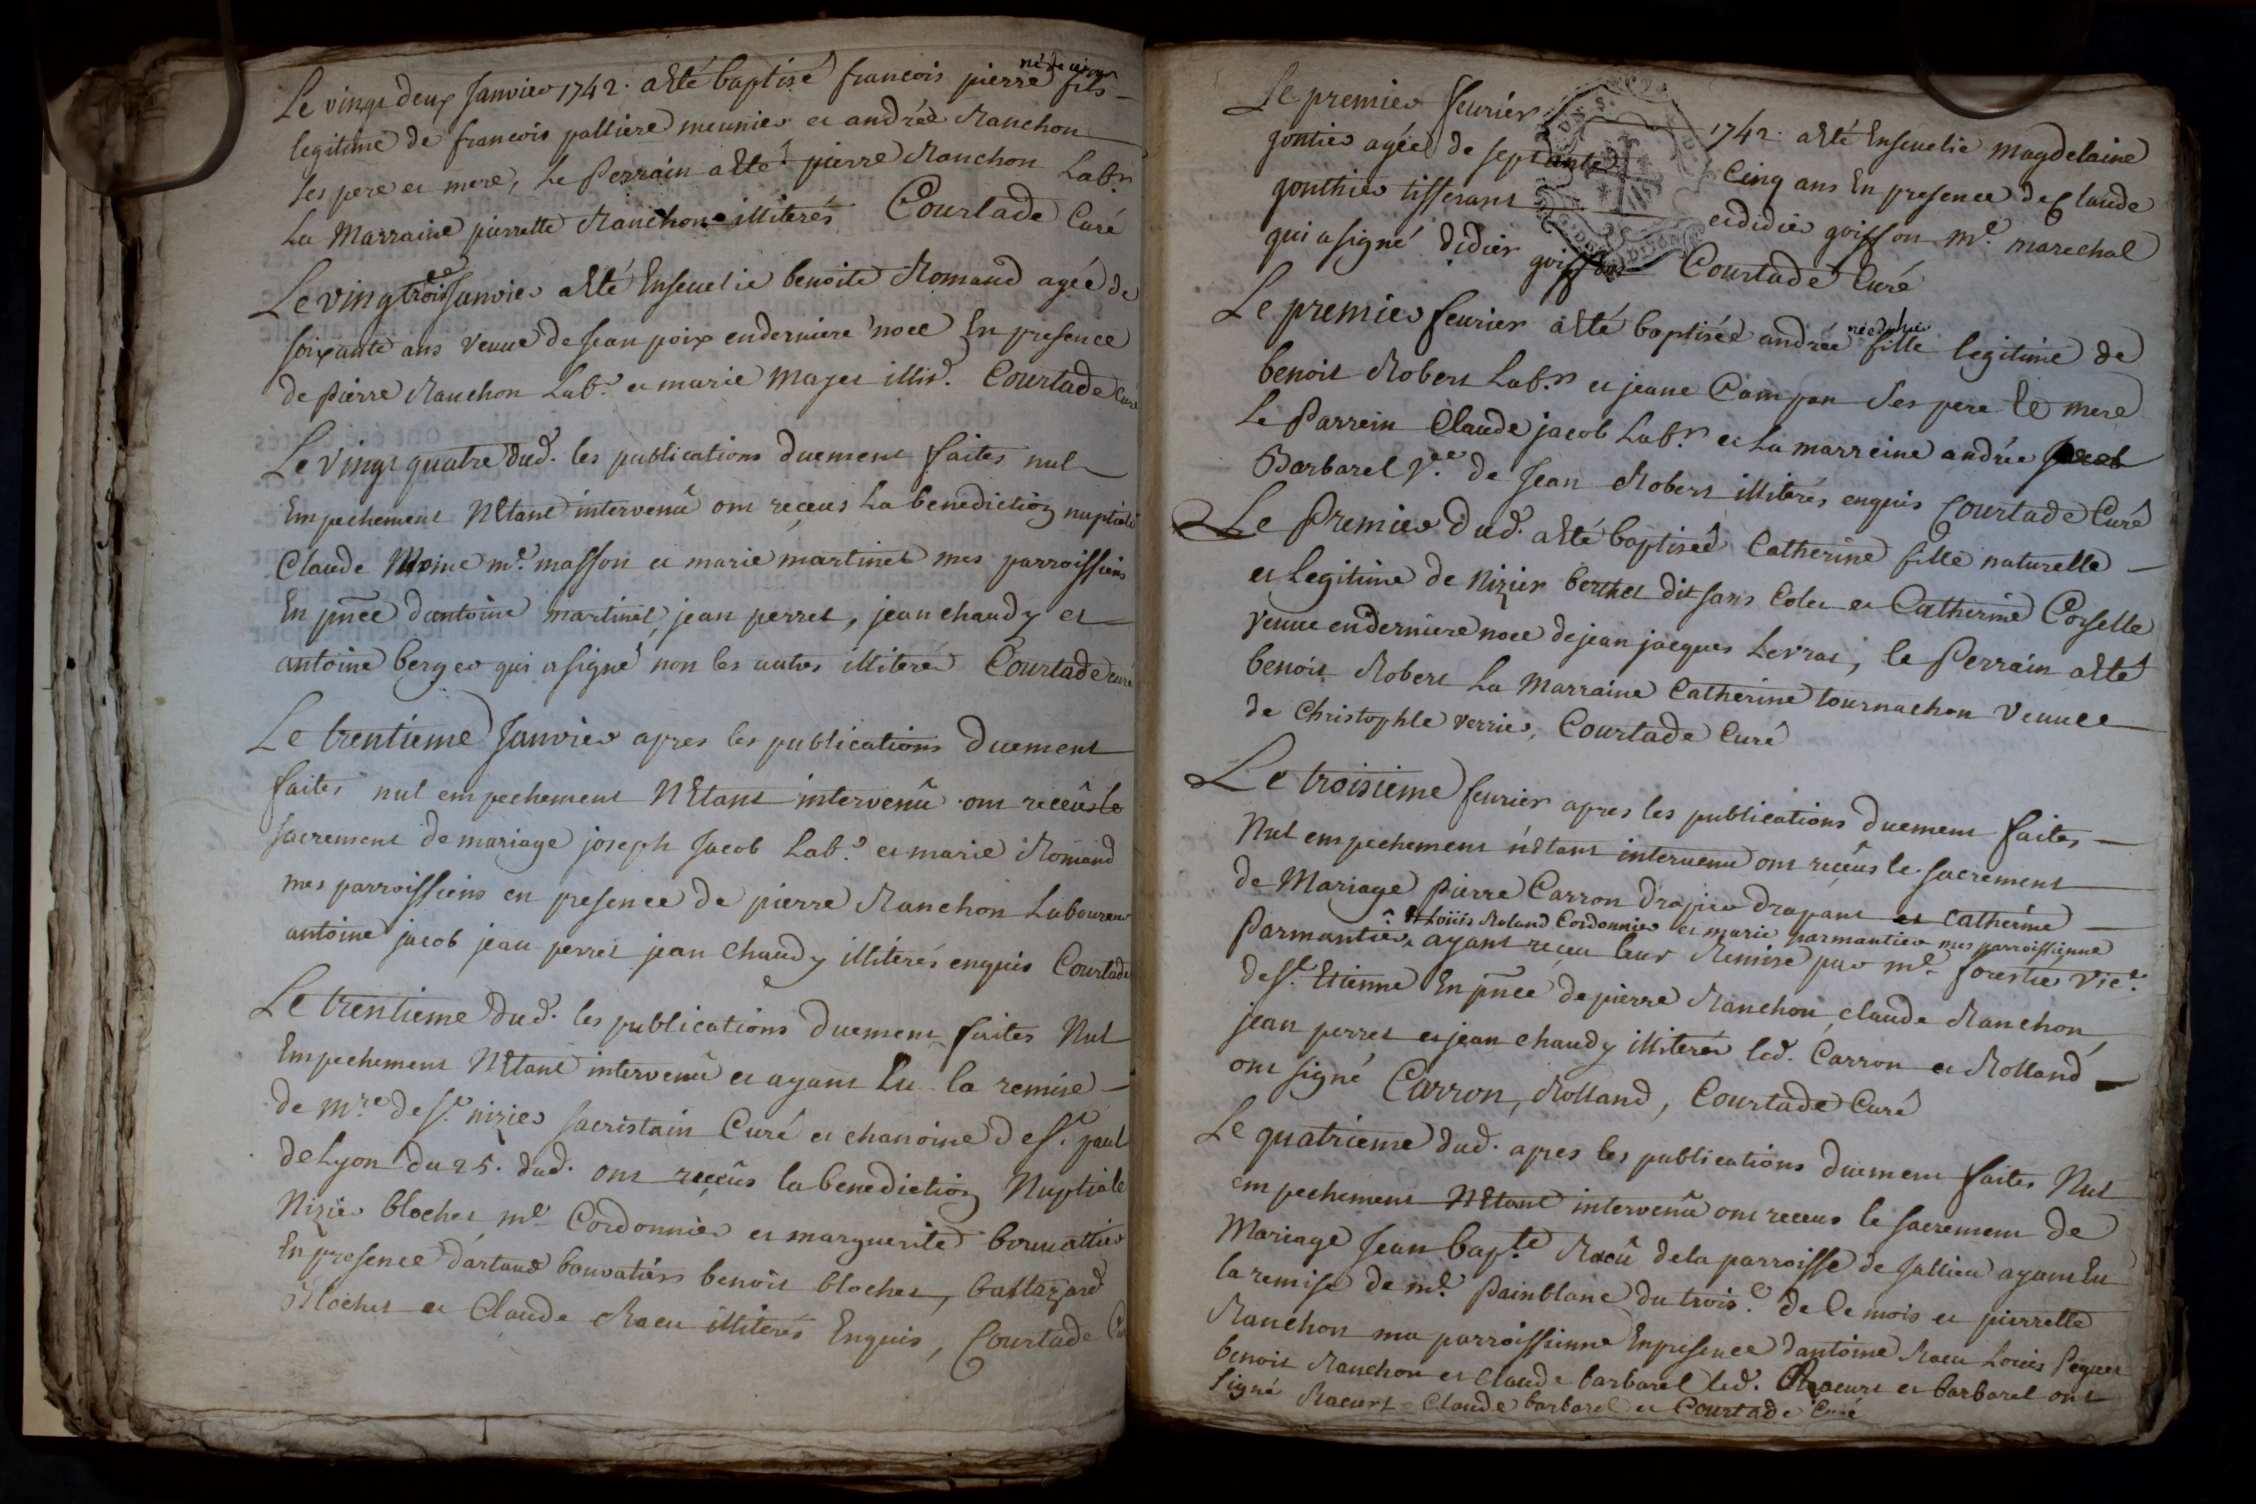 Le vingt deux Janvier 1742. a Eté baptisé francois pierre né ce jour fils
legitime de francois pallière meunier et andréé Ranchon
ses pere et mere, Le Perrain a Eté pierre Ranchon Labr
La Marraine pierrette Ranchon illiterés Courtade Curé
Le vingt trois Janvier a Eté Enseuelie benoite Romand agée de
soixante ans veuue de Jean poix en derniere noce En presence
de Pierre Ranchon Labr. et marie Mayet illit. Courtade Curé
Le vingt quatre dud. les publications duement faites nul
Empechement N'Etant intervenû ont receus La benediction nuptiale
Claude Moine me. masson et marie martinet mes parroissiens
En pñce d'antoine martinet, jean perret, jean chaudy et
antoine berger qui a signé non les autres illiterés Courtade curé
Le trentieme Janvier apres les publications duement
faites nul empechement N'Etant intervenû ont receûs le
sacrement de mariage joseph Jacob Labr. et marie Romand
mes parroissiens en presence de pierre Ranchon Laboureur
antoine jacob jean perret jean chaudy illiterés enquis Courtade
Le trentieme dud. les publications duement faites Nul
Empechement N'Etant intervenû et ayant Eu la remise
de mre de St. nizier sacristain Curé et chanoine de St. paul
de Lyon du 25. dud. ont receûs la benediction Nuptiale
Nizier blochet me Cordonnier et marguerite bouuattier
En presence d'artaud bouvatier benoit blochet, baltazard
Blochet et Claude Racu illiterés Enquis, Courtade Curé
Le premier feurier 1742. a Eté Enseuelie Magdelaine
gontier agéé de septante Cinq ans En presence de Claude
gonthier tisserant et didier goiffon me. marechal
qui a signé didier goiffon Courtade Curé
Le premier feurier a Eté baptiséé andréé née d'hui fille legitime de
benoit Robert Labr. et jeane Campan ses pere Ee mere
Le Parrein Claude jacob Labr et La marreine andrée
Barbarel Vve. de Jean Robert illiterés enquis Courtade Curé
Le Premier dud. a Eté baptiséé Catherine fille naturelle
et Legitime de Nizier berthet dit sans Colet et Catherine Corselle
veuue en derniere noce de jean jacques Levrat, le Perrain a Eté
benoit Robert La Marraine Catherine tournachon veuuee
de Christophle verrier, Courtade Curé
Le troisieme feurier apres les publications duement faites
Nul empechement n'Etant intervenu ont receûs le sacrement
de Mariage Pierre Carron drapier drapant et Catherine
et Loüis Roland Cordonnier et marie parmantier mes parroissienne
Parmantier, ayant receu leur Remise par me. forestier vice.
de St. Etienne En pñce de pierre Ranchon, claude Ranchon,
jean perret et jean chaudy illiterés led. Carron et Rolland
ont signé Carron, Rolland, Courtade Curé
Le quatrieme dud. apres les publications duement faites Nul
empechement N'Etant intervenû ont receus le sacrement de
Mariage Jean bapte. Racû de la parroisse de Jallieu ayant Eu
la remise de me. Painblanc du trois.e de Ce mois et pierrette
Ranchon ma parroissienne En presence d'antoine Racu Louis Peguet
benoit Ranchon et Claude barbarel led. Racurt et barbarel ont
signé Racurt Claude barbarel et Courtade Curé